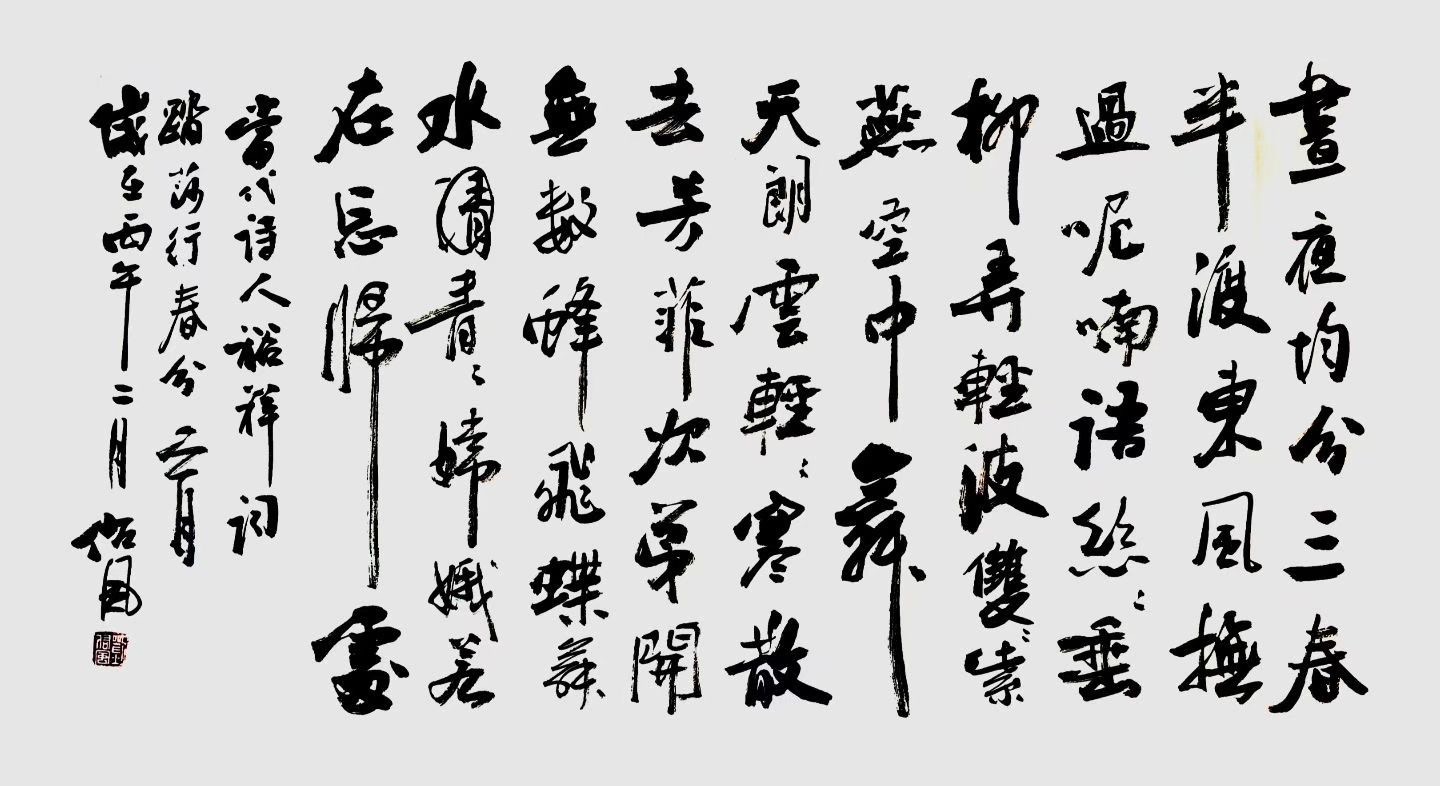 晝夜均分三春
半渡東風撫
過呢喃語絲〻垂
柳弄輕波雙〻紫
燕空中舞
天朗雲輕〻寒散
去芳菲次第開
無數蜂飛蝶舞
水清青〻嫦娥若
在忘歸處
當代詩人裕祥詞
踏莎行春分
歲在丙午二月